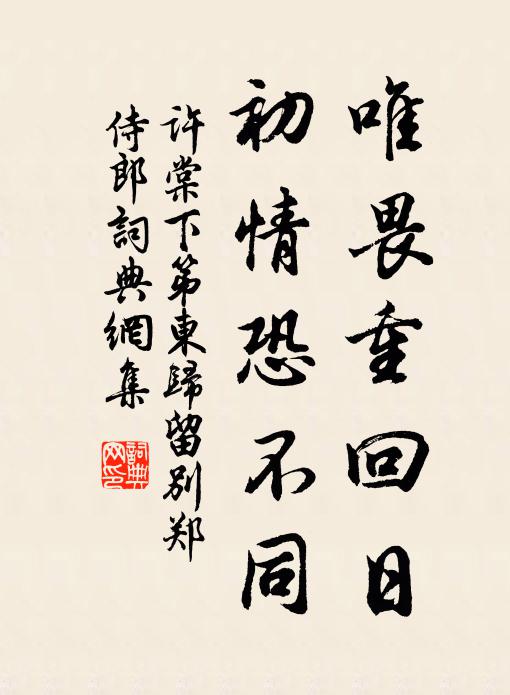 唯畏重回日
初情恐不同
许棠下第東歸留別郑
侍郎詞典網集
詞典網印